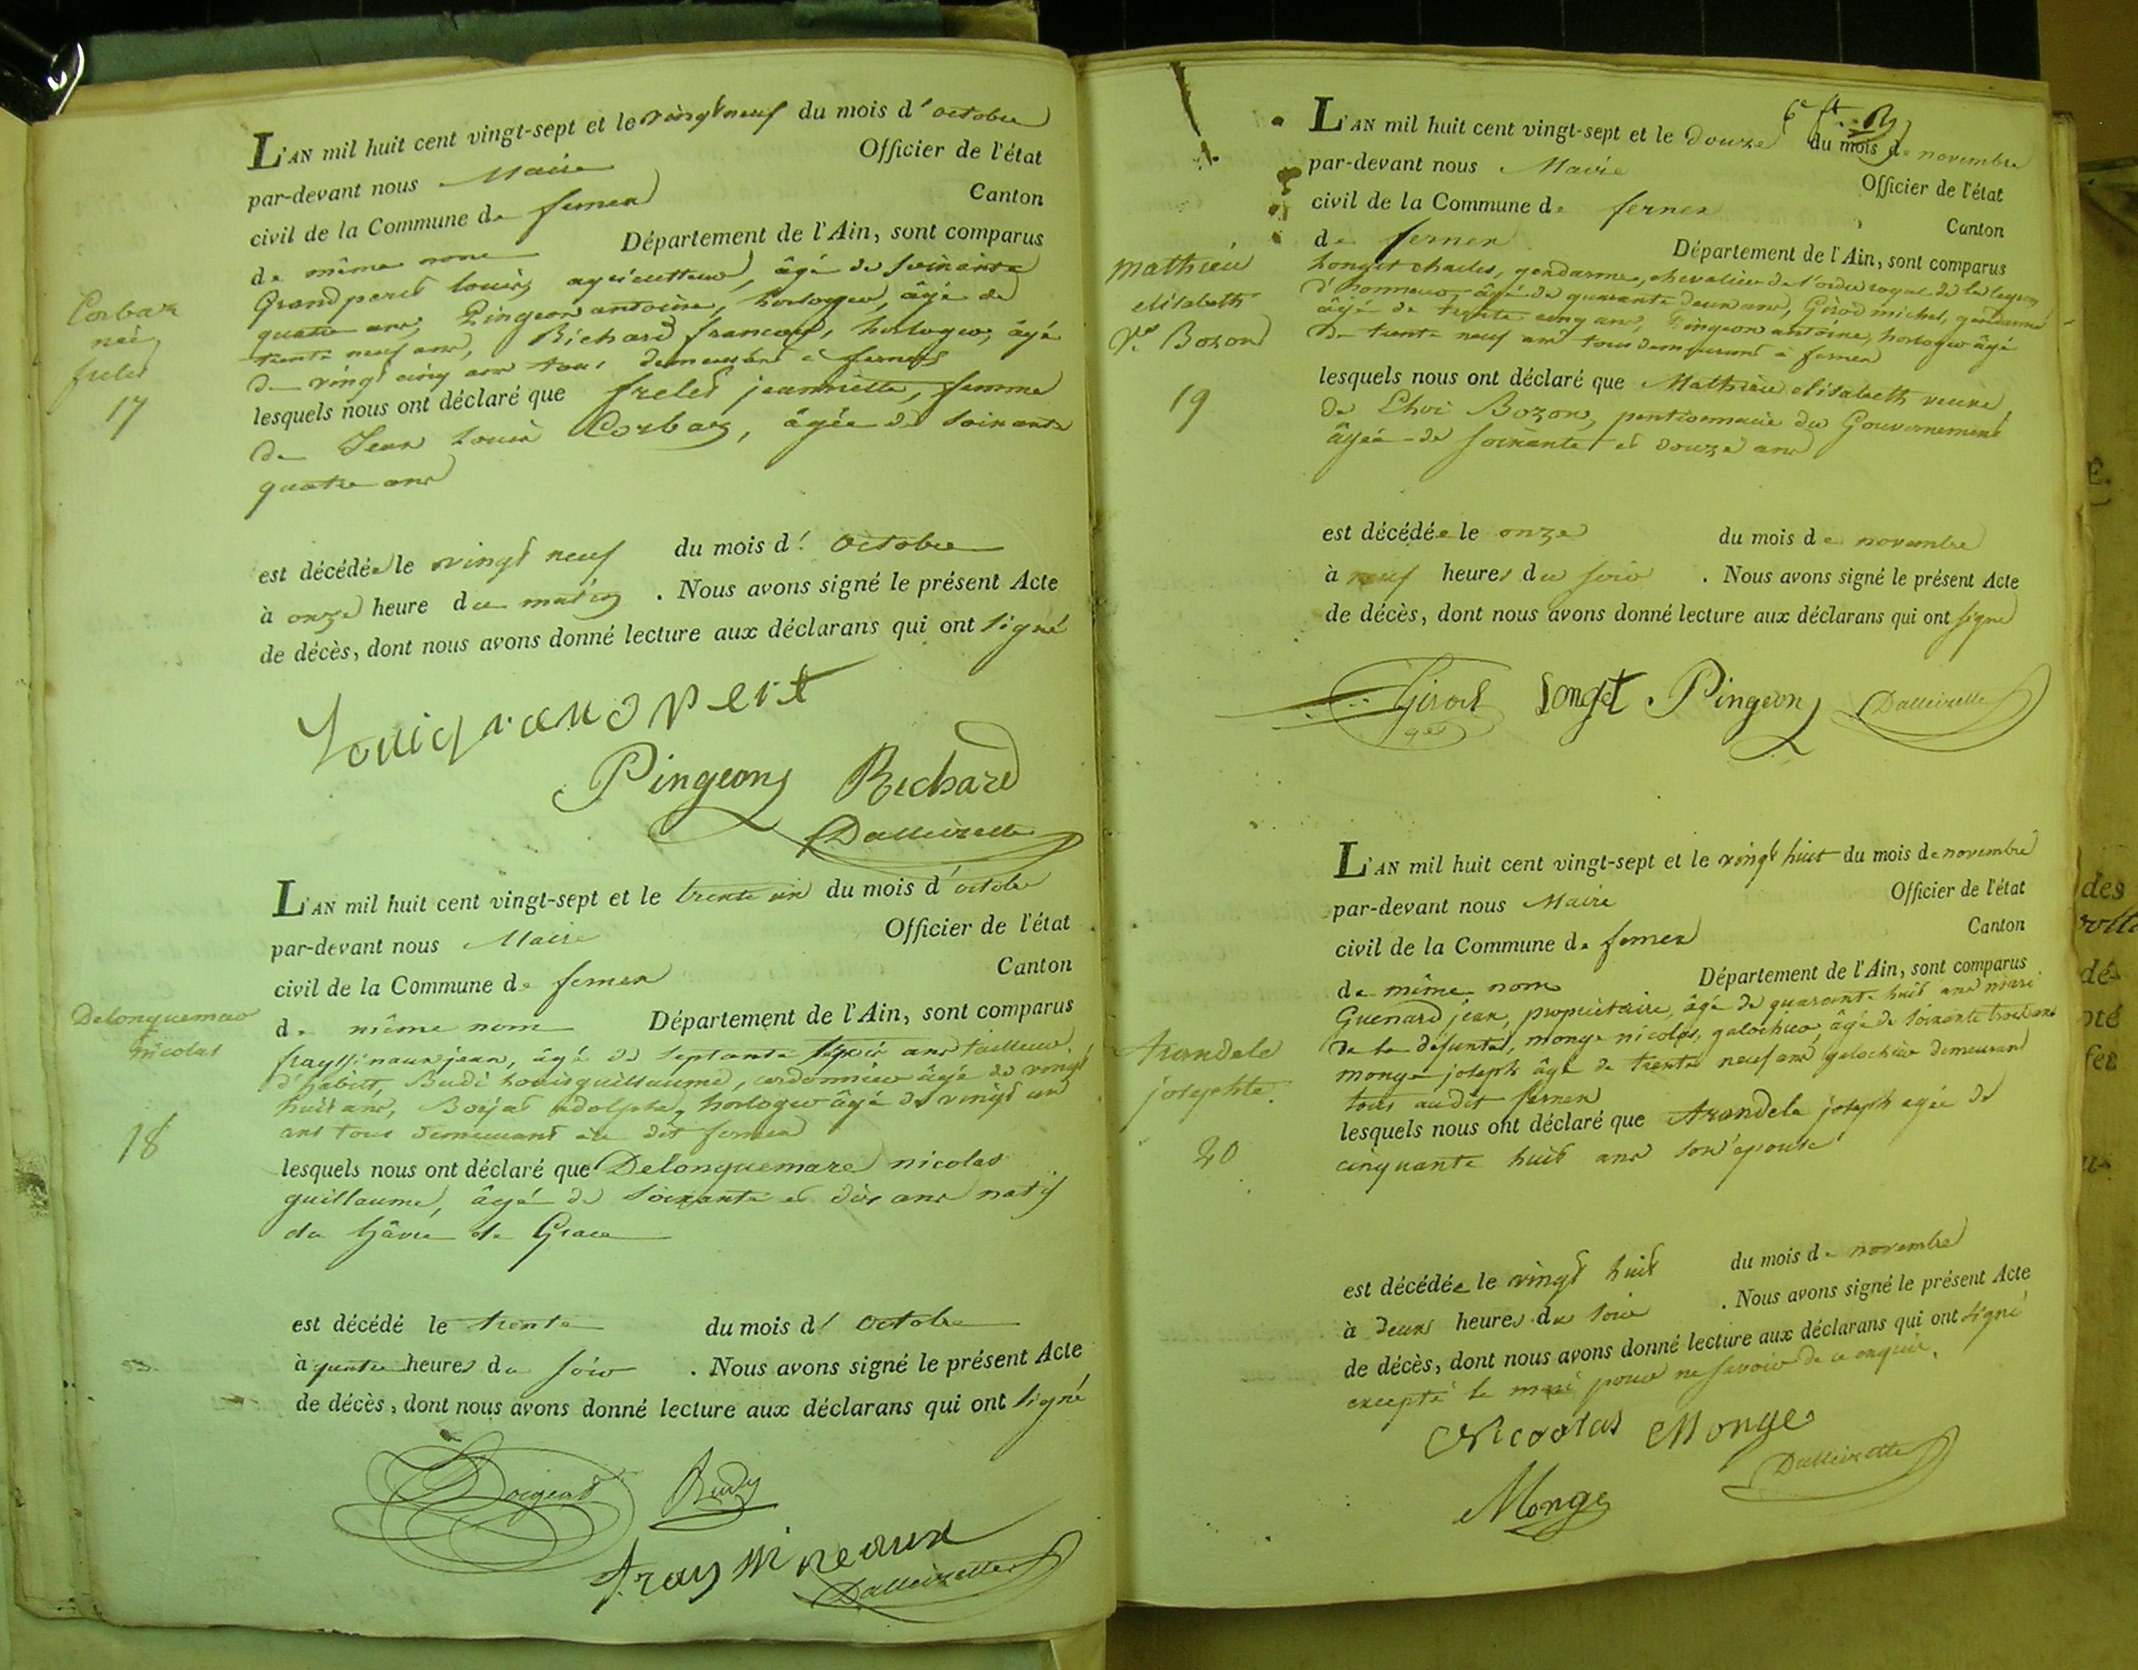 L'AN mil huit cent vingt-sept et le vingt neuf du mois d'octobre
par-devant nous Maire Officier de l'état
civil de la Commune de fernex Canton
de même nom Département de l'Ain, sont comparus
Grandperet louis, agriculteur, âgé de soixante
quatre ans, Pingeon antoine, horloger, âgé de
trente neuf ans, Richard françois, horloger, âgé
de vingt cinq ans tous demeurant à fernex
lesquels nous ont déclaré que frelet jeannette, femme
de Jean Louis Corbaz, âgée de soixante
quatre ans
Corbaz
née
frelet
17
est décédée le vingt neuf du mois d'octobre
à onze heure du matin . Nous avons signé le présent Acte
de décès, dont nous avons donné lecture aux déclarans qui ont signé
Pingeon Richard
Dalleizette
L'AN mil huit cent vingt-sept et le trente un du mois d'octobre
par-devant nous Maire Officier de l'état
civil de la Commune de fernex Canton
de même nom Département de l'Ain, sont comparus
jean, âgé de septante ans tailleur
d'habits, Budé Louis guillaume, cordonnier âgé de vingt
huit ans, adolphe, horloger âgé de vingt un
ans tous demeurant au dit fernex
lesquels nous ont déclaré que Delonguemare nicolas
guillaume, âgé de soixante et dix ans natif
du hâvre de Grace
Delonguemare
nicolas
18
est décédé le trente du mois d'octobre
à quatre heures du soir . Nous avons signé le présent Acte
de décès, dont nous avons donné lecture aux déclarans qui ont signé
Budé
Dalleizette
L'AN mil huit cent vingt-sept et le douze du mois de novembre
par-devant nous Maire Officier de l'état
civil de la Commune de fernex Canton
de fernex Département de l'Ain, sont comparus
Longet charles, gendarme, chevalier de l'ordre royal de la legion
d'honneur, âgé de quarante deux ans, Girod michel, gendarme
âgé de trente cinq ans, Pingeon antoine, horloger âgé
de trente neuf ans tous demeurant à fernex
lesquels nous ont déclaré que Mathieu elisabeth veuve
de Bozon, pentionnaire du Gouvernement
âgée de soixante et douze ans
mathieu
elisabeth
Ve Bozon
19
est décédée le onze du mois de novembre
à neuf heures du soir . Nous avons signé le présent Acte
de décès, dont nous avons donné lecture aux déclarans qui ont signé
Girod Longet Pingeon Dalleizette
L'AN mil huit cent vingt-sept et le vingt huit du mois de novembre
par-devant nous Maire Officier de l'état
civil de la Commune de fernex Canton
de même nom Département de l'Ain, sont comparus
Guenard jean, propriétaire, âgé de quarante huit ans mari
de la défunte, monge nicolas, galochier âgé de soixante trois ans
monge joseph âgé de trente neuf ans galochier demeurant
tous audit fernex
lesquels nous ont déclaré que Arandele joseph agée de
cinquante huit ans son épouse
Arandele
josephte.
20
est décédée le vingt huit du mois de novembre
à deux heures du soir . Nous avons signé le présent Acte
de décès, dont nous avons donné lecture aux déclarans qui ont signé
excepté le mari pour ne savoir de ce enquis.
Nicoolas Monge
Monge Dalleizette